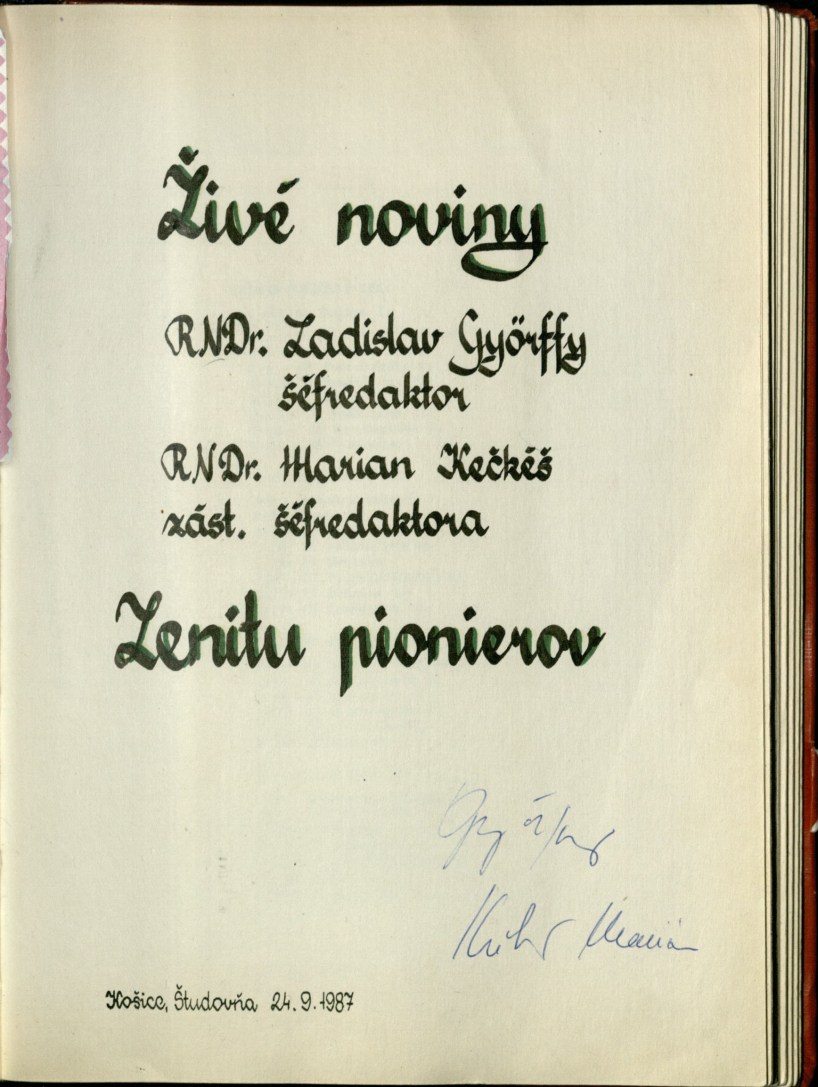 Živé noviny
RNDr. Ladislav Győrffy
šéfredaktor
RNDr. Marian Kečkéš
zást. šéfredaktora
Zenitu pionierov
Marián
Košice, Študovňa 24.9.1987